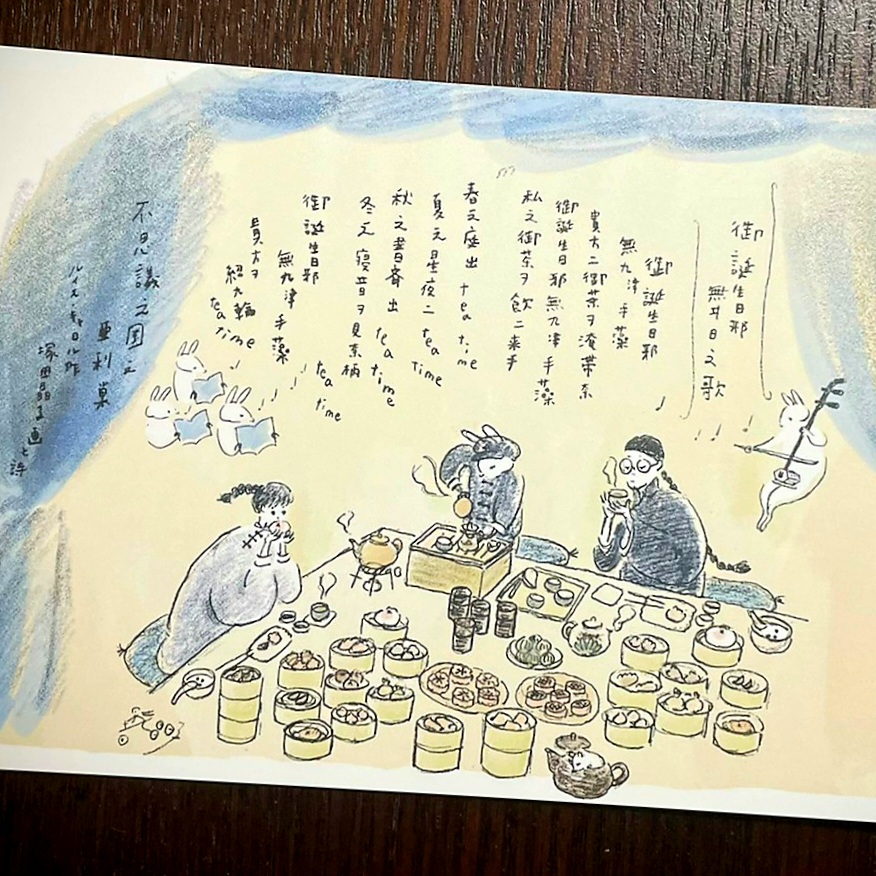 御誕生日邪
無ヰ日之歌
御誕生日邪
無九津手藻
貴方二御茶ヲ淹帯奈
御誕生日邪無九津手藻
私之御茶ヲ飲二来手
春之庭出 tea time
夏之星夜二 tea time
秋之書斎出 tea time
冬之寝音ヲ見奈柄
tea time
御誕生日邪
無九津手藻
貴方ヲ
紹九輪
tea time
不思議之国之
亜利巣
ルイス・キャロル作
塚田 画と詩